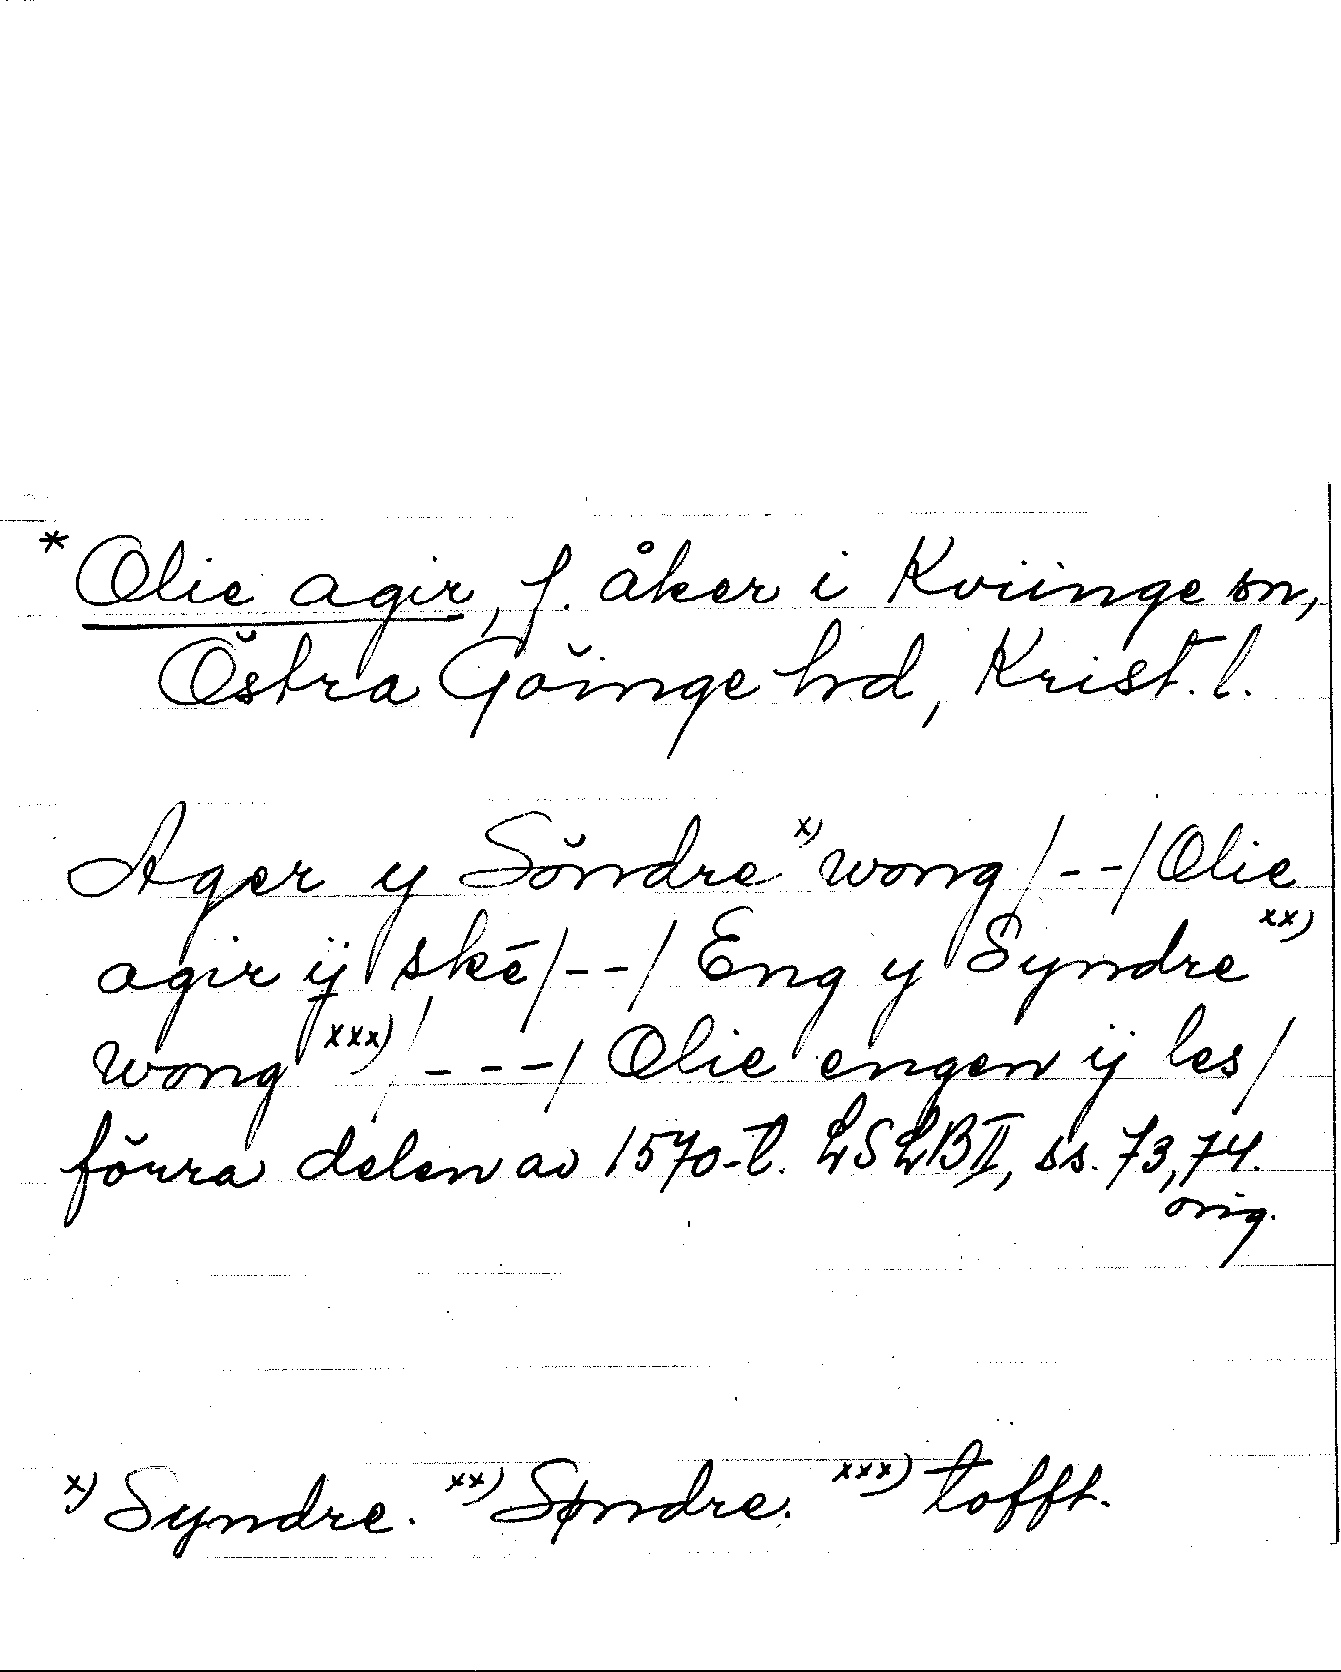 * Olie agir, f. åker i Kviinge sn,
Östra Göinge hrd, Krist. l.
Ager y Söndre x) wong /--/ Olie
agir ij skē /--/ Eng y Syndre xx)
wong xxx) /---/ Olie engen ij les/
förra delen av 1570-t. LSLB II, ss. 73, 74.
orig.
x) Syndre. xx) Søndre. xxx) tofft.